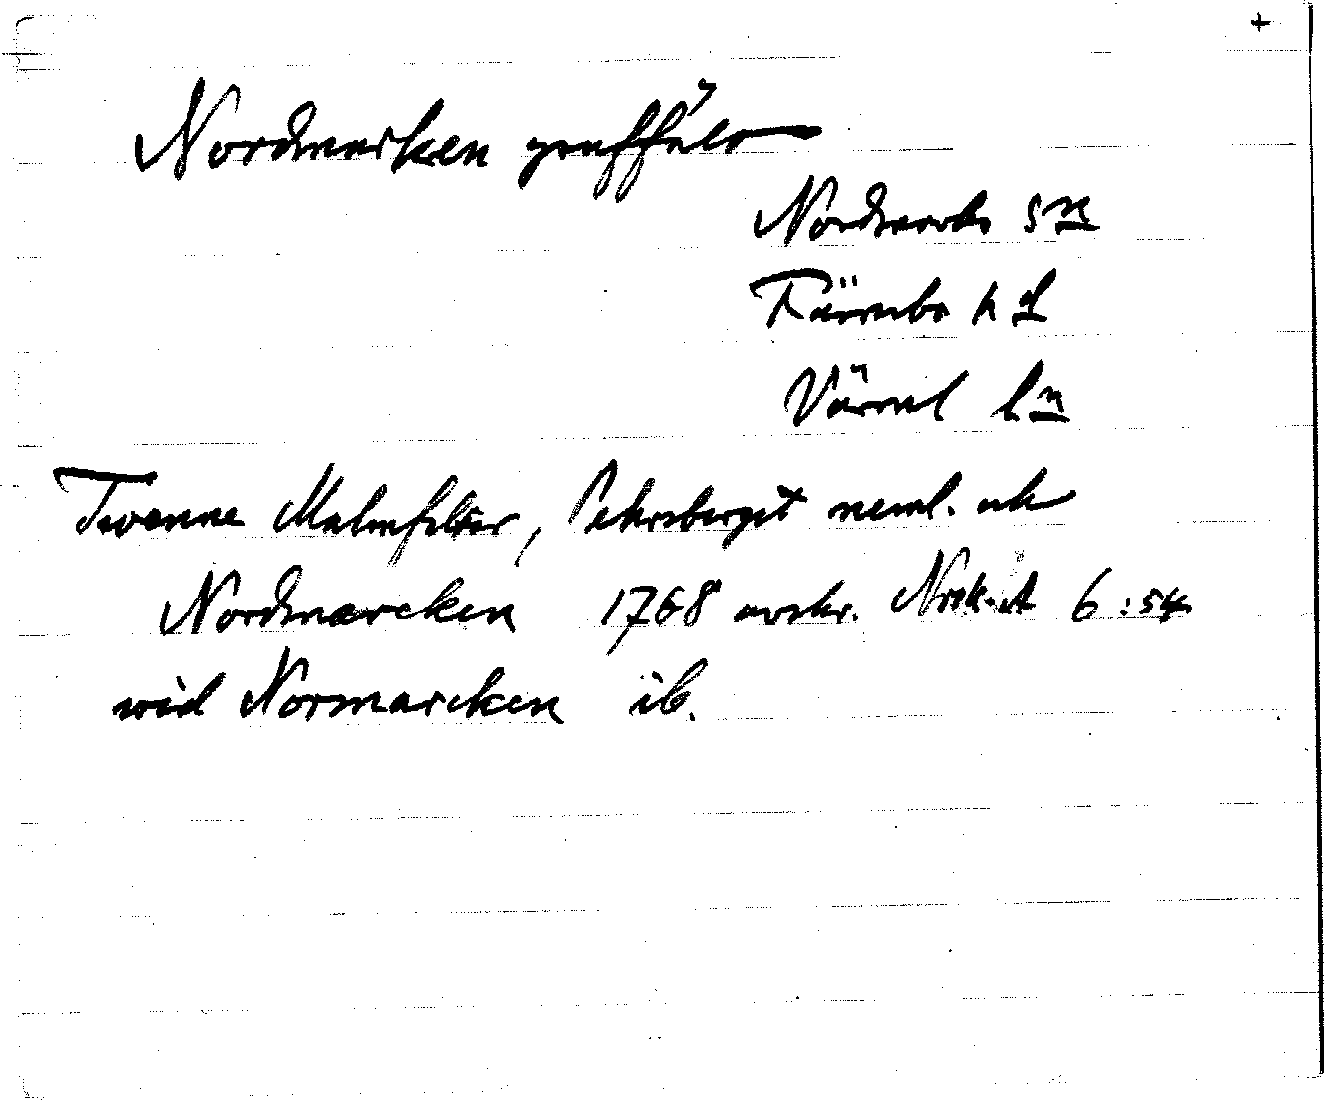 +
Nordmarken gruffält
Nordmarks sn
Färnebo hd
Värml ln
Twenne Malmfelter, Pehrsberget neml. och
Nordmarcken 1768 avskr. 6:54
wid Normarcken ib.